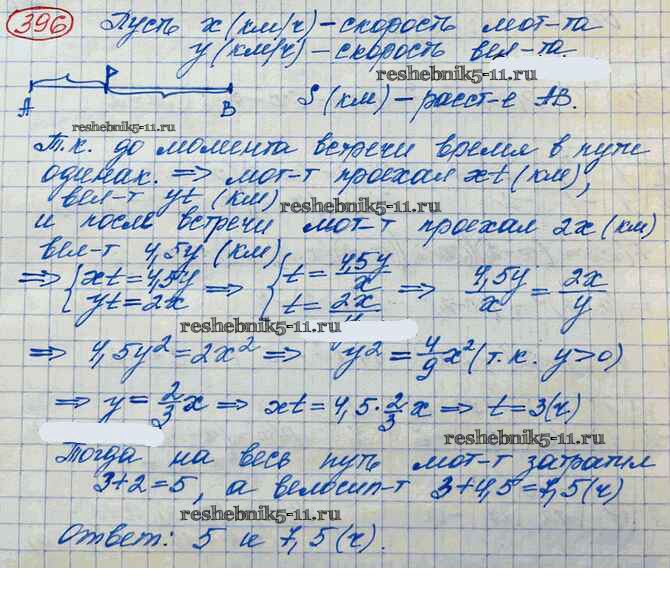 396 Пусть x (км/ч) – скорость мот-та
y (км/ч) – скорость вел-та.
reshebnik5-11.ru
P
A B S (км) – расст-е AB.
reshebnik5-11.ru
Т.к. до момента встречи время в пути
одинак. ⇒ мот-т проехал xt (км),
вел-т yt (км)
reshebnik5-11.ru
и после встречи мот-т проехал 2x (км)
вел-т 4,5y (км)
⇒ { xt = 4,5y ⇒ { t = 4,5y/x ⇒ 4,5y/x = 2x/y
yt = 2x t = 2x/
reshebnik5-11.ru
⇒ 4,5y² = 2x² ⇒ y² = 4/9 x² (т.к. y>0)
⇒ y = 2/3 x ⇒ xt = 4,5 · 2/3 x ⇒ t = 3 (ч)
reshebnik5-11.ru
Тогда на весь путь мот-т затратил
3+2=5, а велосип-т 3+4,5=7,5 (ч)
reshebnik5-11.ru
Ответ: 5 и 7,5 (ч).